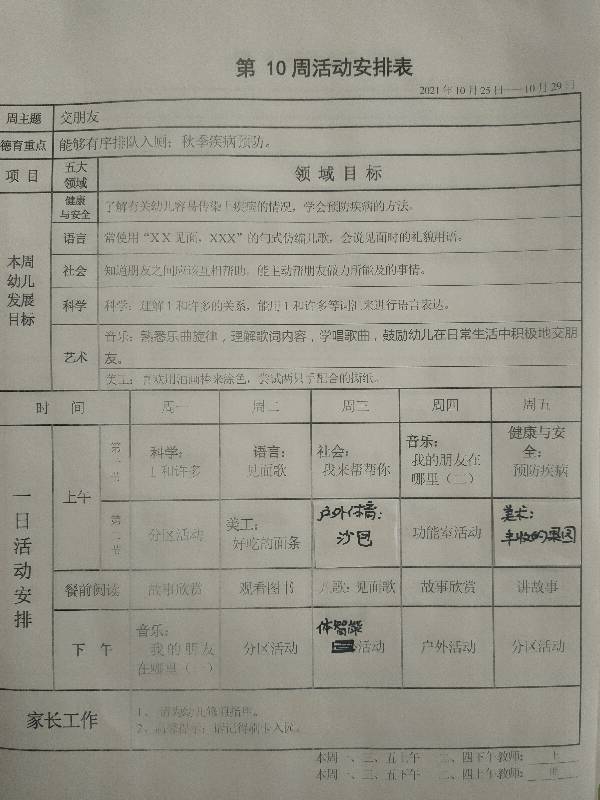 第 10 周活动安排表
2021年10月25日——10月29日
周主题 交朋友
德育重点 能够有序排队入厕；秋季疾病预防。
项 目 五大领域 领 域 目 标
本周幼儿发展目标
健康与安全 了解有关幼儿容易传染上疾病的情况，学会预防疾病的方法。
语言 常使用“XX见面，XXX”的句式仿编儿歌，会说见面时的礼貌用语。
社会 知道朋友之间应该互相帮助，能主动帮朋友做力所能及的事情。
科学 科学：理解1和许多的关系，能用1和许多等词汇来进行语言表达。
艺术 音乐：熟悉乐曲旋律，理解歌词内容，学唱歌曲，鼓励幼儿在日常生活中积极地交朋
友。
美工：喜欢用油画棒来涂色，尝试两只手配合的撕纸。
时 间 周一 周二 周三 周四 周五
一日活动安排
上午
第一节 科学：1和许多 语言：见面歌 社会：我来帮帮你 音乐：我的朋友在哪里（二） 健康与安全：预防疾病
第二节 分区活动 美工：好吃的面条 户外体育：沙包 功能室活动 美术：丰收的果园
餐前阅读 故事欣赏 观看图书 儿歌：见面歌 故事欣赏 讲故事
下 午 音乐：我的朋友在哪里（一） 分区活动 体智能活动 户外活动 分区活动
家长工作
1、请为幼儿修剪指甲。
2、温馨提示：请记得刷卡入园。
本周一、三、五上午 二、四下午教师：
本周一、三、五下午 二、四上午教师：